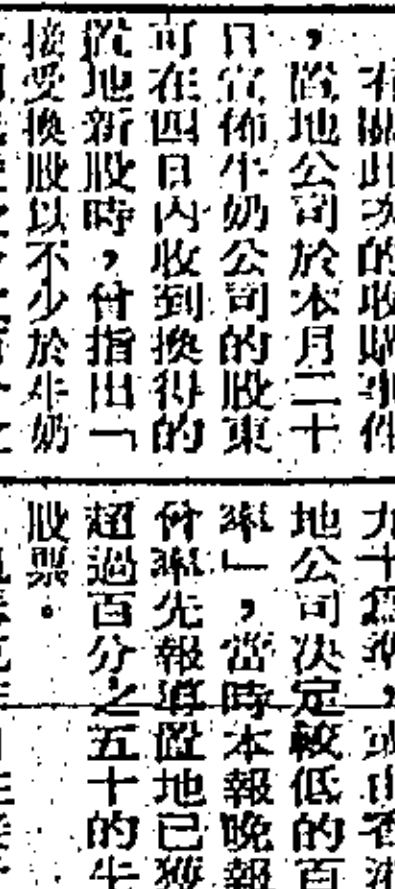 有關此次的收購事件
，置地公司於本月二十
日宣佈牛奶公司的股東
可在四日內收到換得的
置地新股時，曾指出「
接受換股以不少於牛奶
九十為準，
地公司決定較低的百
率」，當時本報晚報
曾率先報導置地已獲
超過百分之五十的牛
股票。